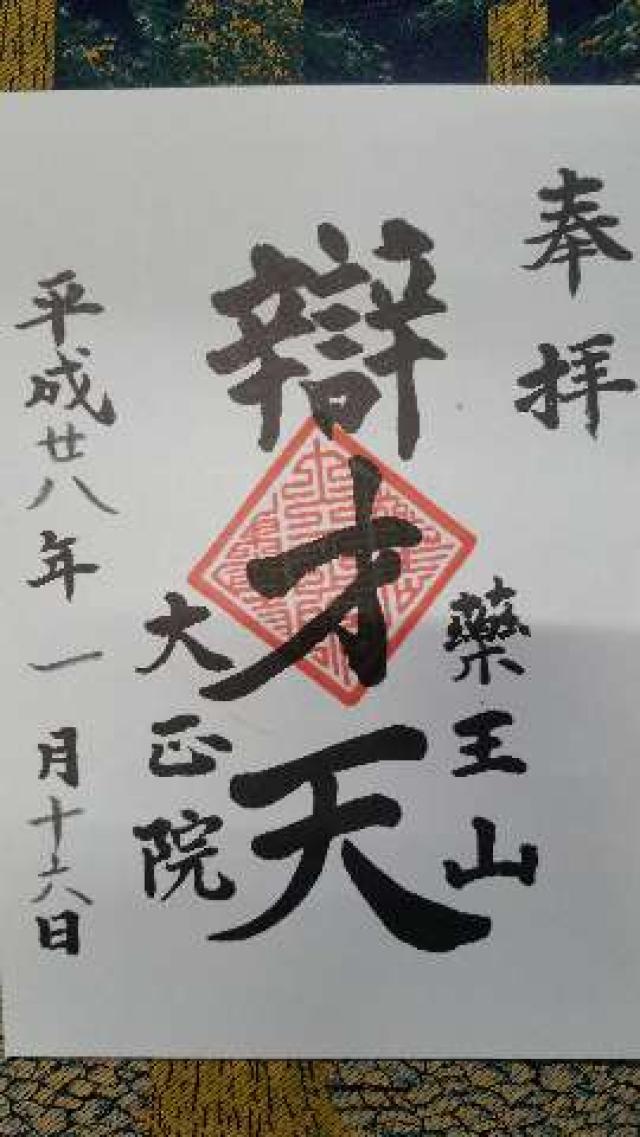 奉拝
藥王山
辯才天
大正院
平成廿八年一月十六日